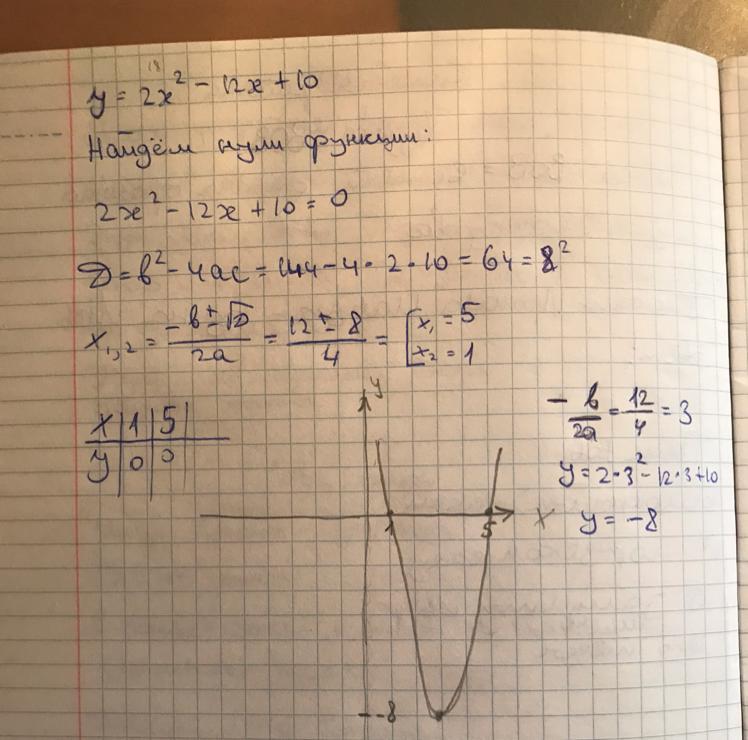 y = 2x² - 12x + 10
Найдём нули функции:
2x² - 12x + 10 = 0
D = b² - 4ac = 144 - 4 · 2 · 10 = 64 = 8²
x₁,₂ = (-b ± √D)/2a = (12 ± 8)/4 = [x₁ = 5
x₂ = 1
x | 1 | 5 |
y | 0 | 0
y
x
1
5
-8
-b/2a = 12/4 = 3
y = 2 · 3² - 12 · 3 + 10
y = -8